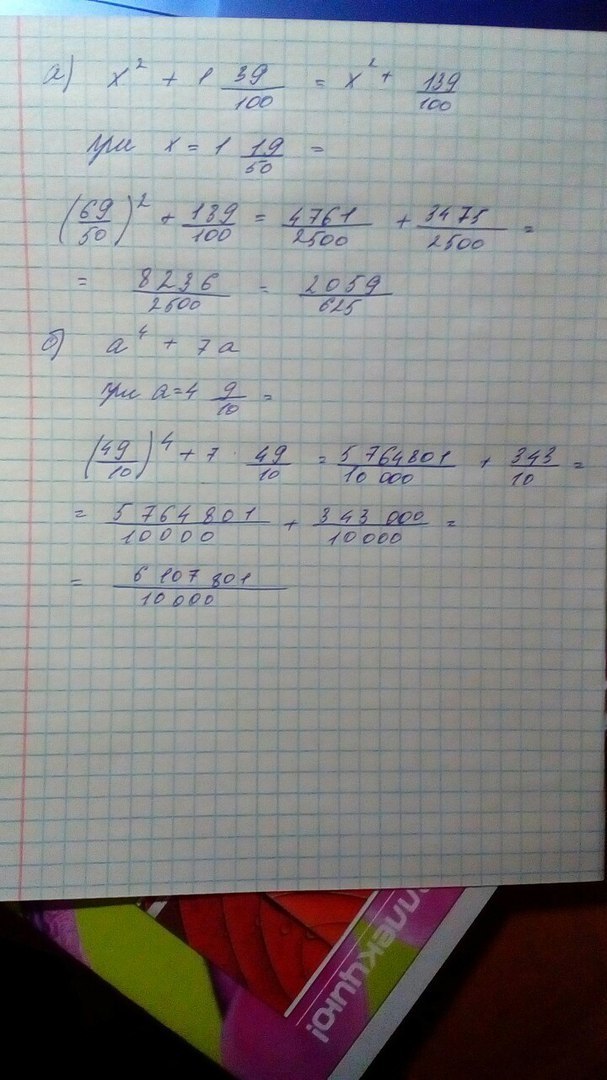 а) x² + 1 39/100 = x² + 139/100
при x = 1 19/50 =
(69/50)² + 139/100 = 4761/2500 + 3475/2500 =
= 8236/2500 = 2059/625
б) a⁴ + 7a
при a = 4 9/10 =
(49/10)⁴ + 7 · 49/10 = 5764801/10000 + 343/10 =
= 5764801/10000 + 343000/10000 =
= 6107801/10000
ллекцию!